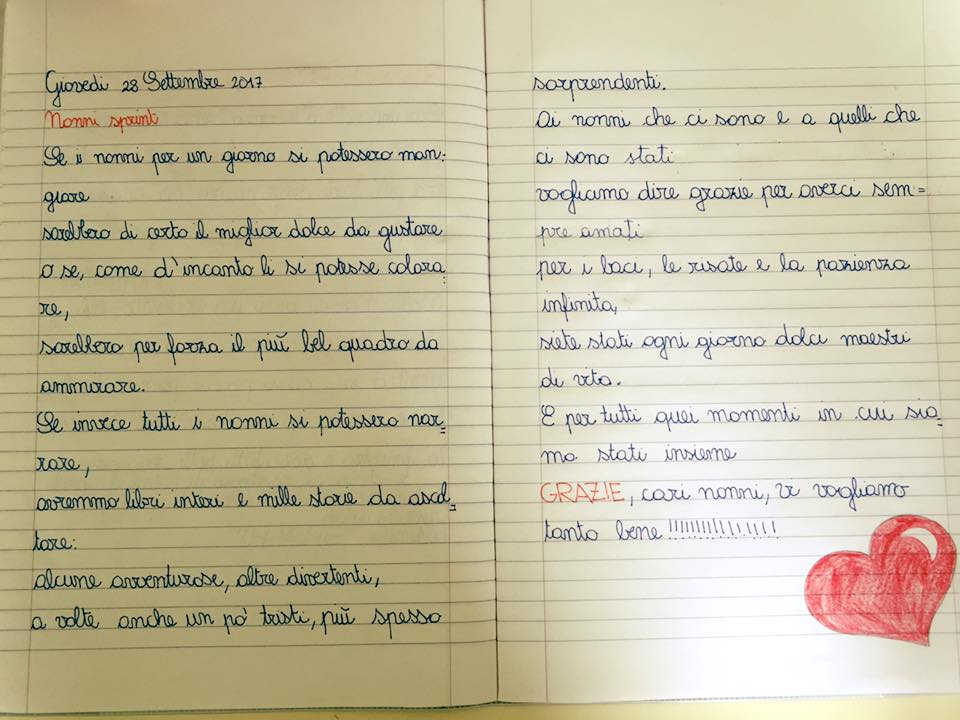 Giovedì 28 Settembre 2017
Nonni sprint
Se i nonni per un giorno si potessero man=
giare
sarebbero di certo il miglior dolce da gustare
o se, come d'incanto li si potesse colora=
re,
sarebbero per forza il più bel quadro da
ammirare.
Se invece tutti i nonni si potessero nar=
rare,
avremmo libri interi e mille storie da ascol=
tare:
alcune avventurose, altre divertenti,
a volte anche un po' tristi, più spesso
sorprendenti.
Ai nonni che ci sono e a quelli che
ci sono stati
vogliamo dire grazie per averci sem=
pre amati
per i baci, le risate e la pazienza
infinita,
siete stati ogni giorno dolci maestri
di vita.
E per tutti quei momenti in cui sia=
mo stati insieme
GRAZIE, cari nonni, vi vogliamo
tanto bene !!!!!!!!!!!!!!!